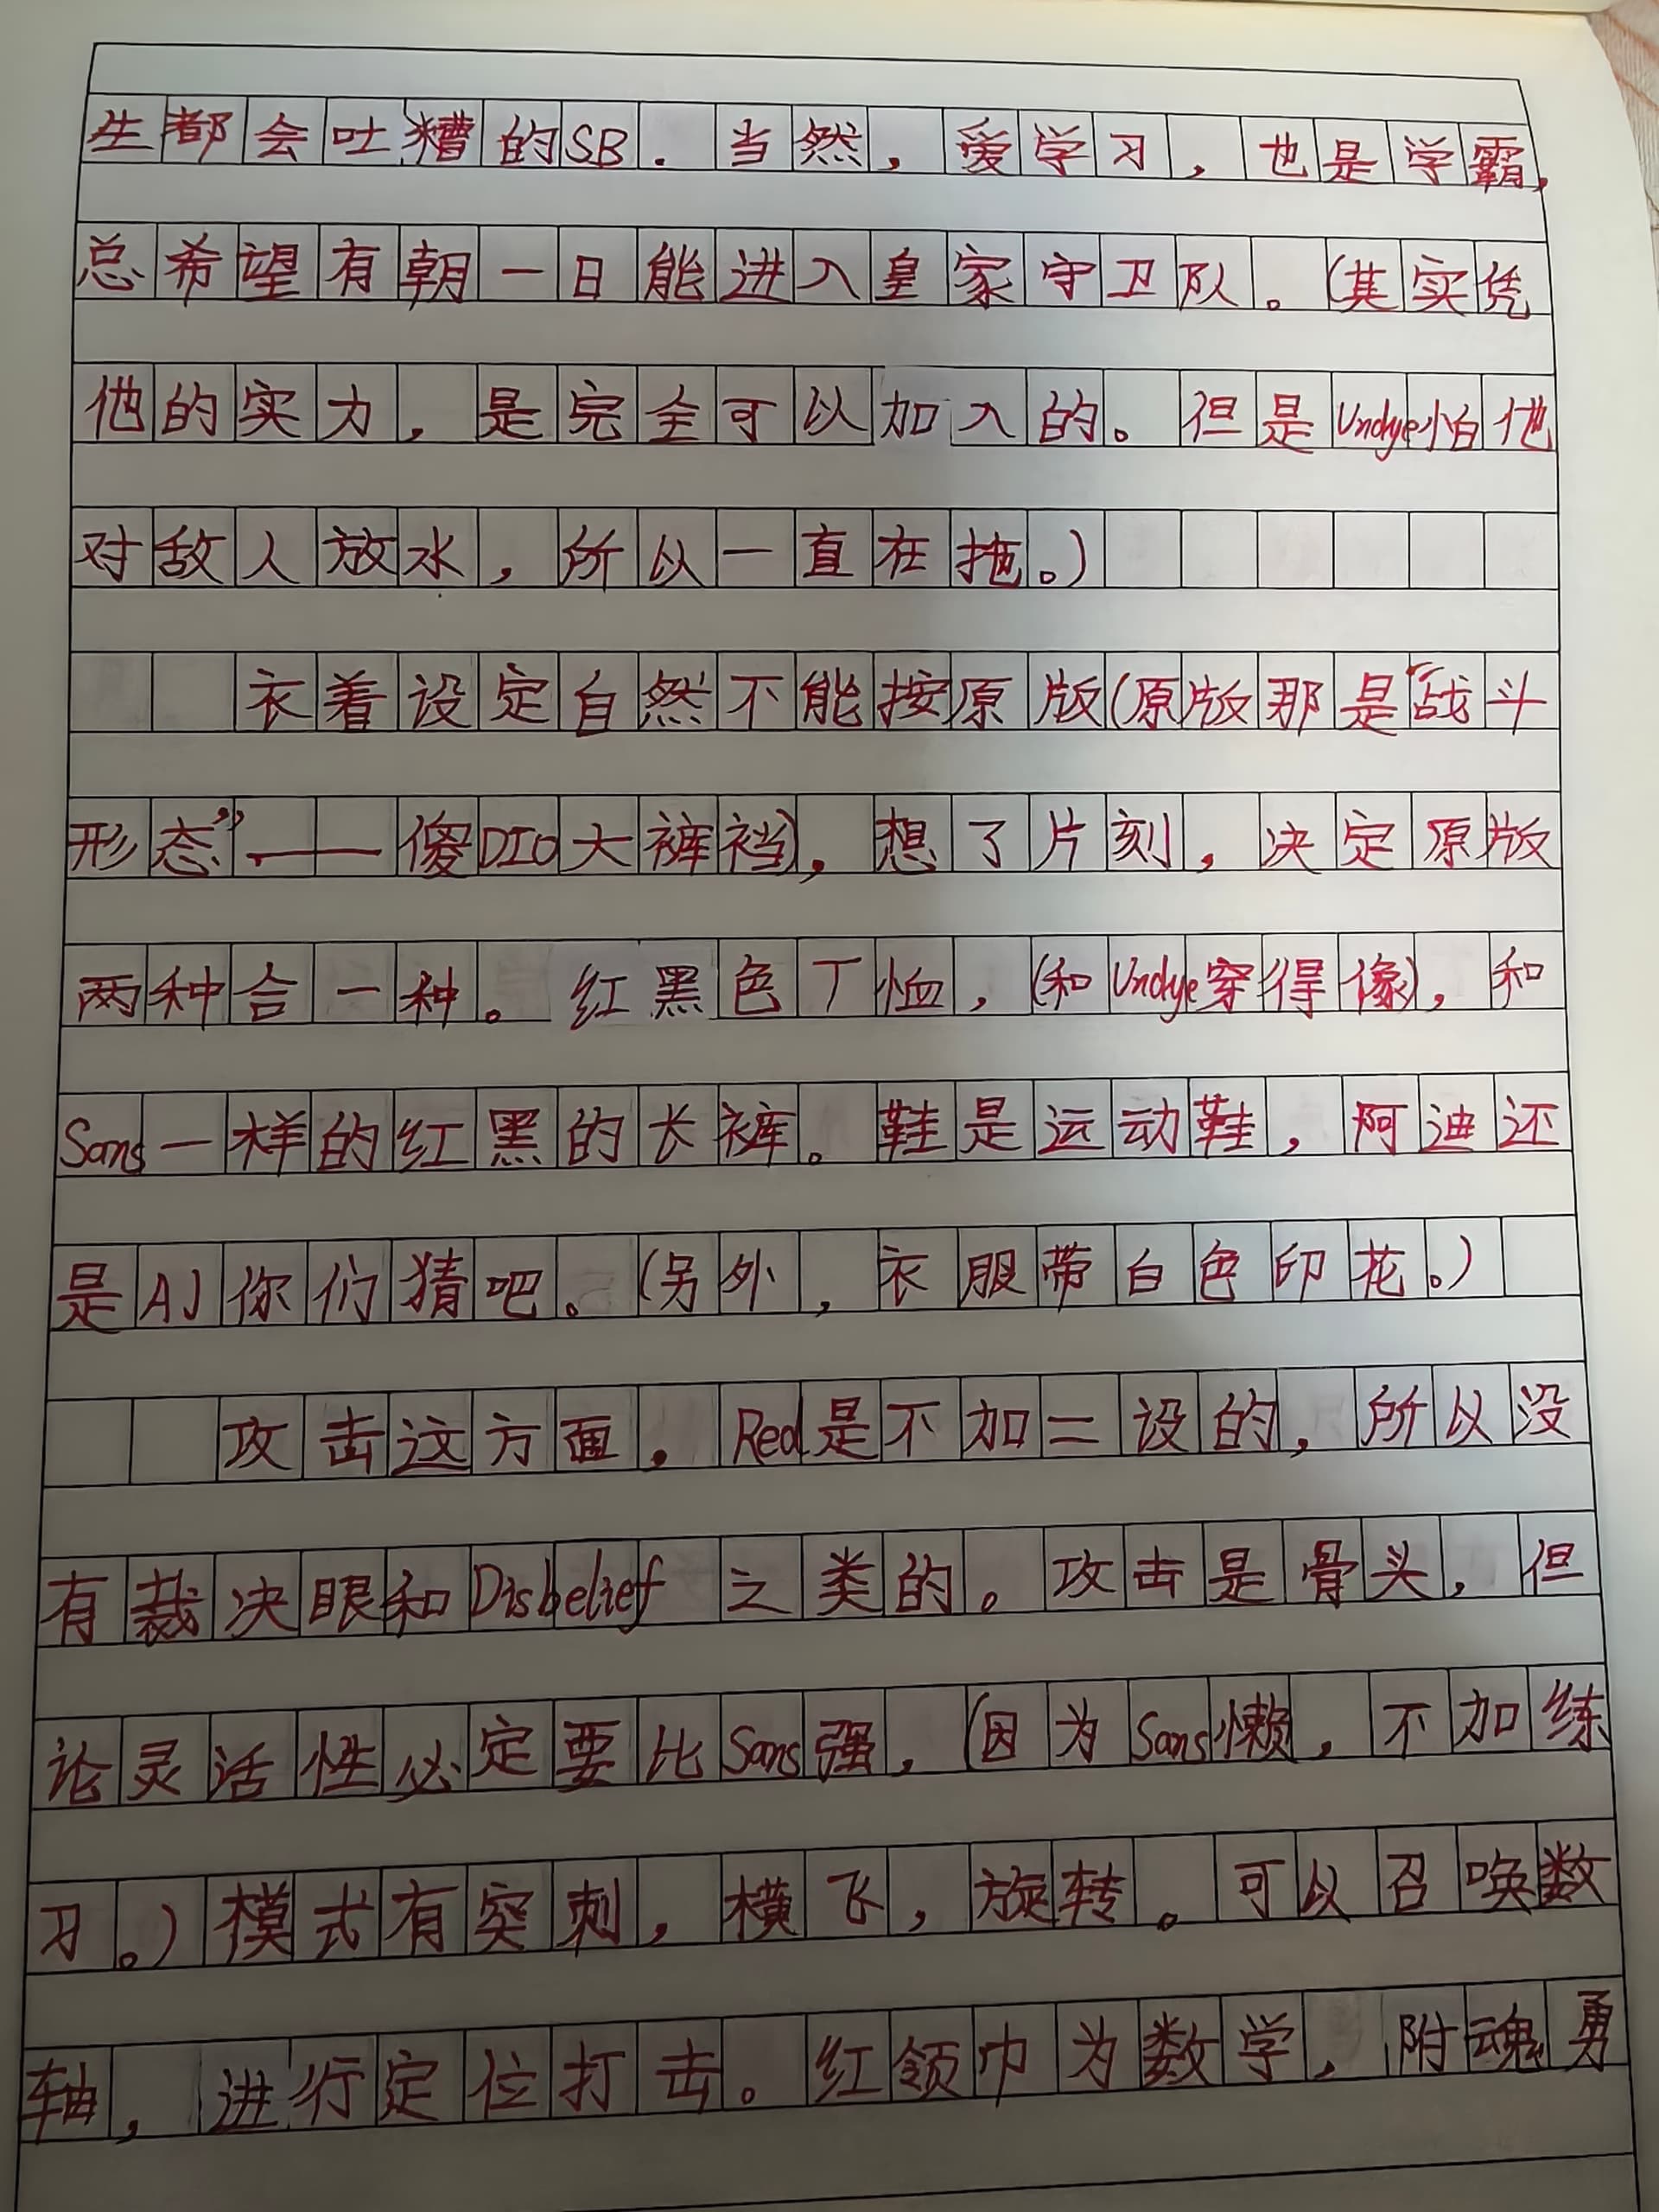 生都会吐糟的SB.当然,爱学习,也是学霸,
总希望有朝一日能进入皇家守卫队。(其实凭
他的实力,是完全可以加入的。但是Undye怕他
对敌人放水,所以一直在拖。)
衣着设定自然不能按原版(原版那是“战斗
形态”——傻DIO大裤裆),想了片刻,决定原版
两种合一种。红黑色T恤,(和Undye穿得像),和
Sans一样的红黑的长裤。鞋是运动鞋,阿迪还
是AJ你们猜吧。(另外,衣服带白色印花。)
攻击这方面.Red是不加二设的,所以没
有裁决眼和Disbelief之类的。攻击是骨头,但
论灵活性必定要比Sans强,(因为Sans懒,不加练
习。)模式有突刺,横飞,旋转。可以召唤数
轴,进行定位打击。红领巾为数学,附魂勇